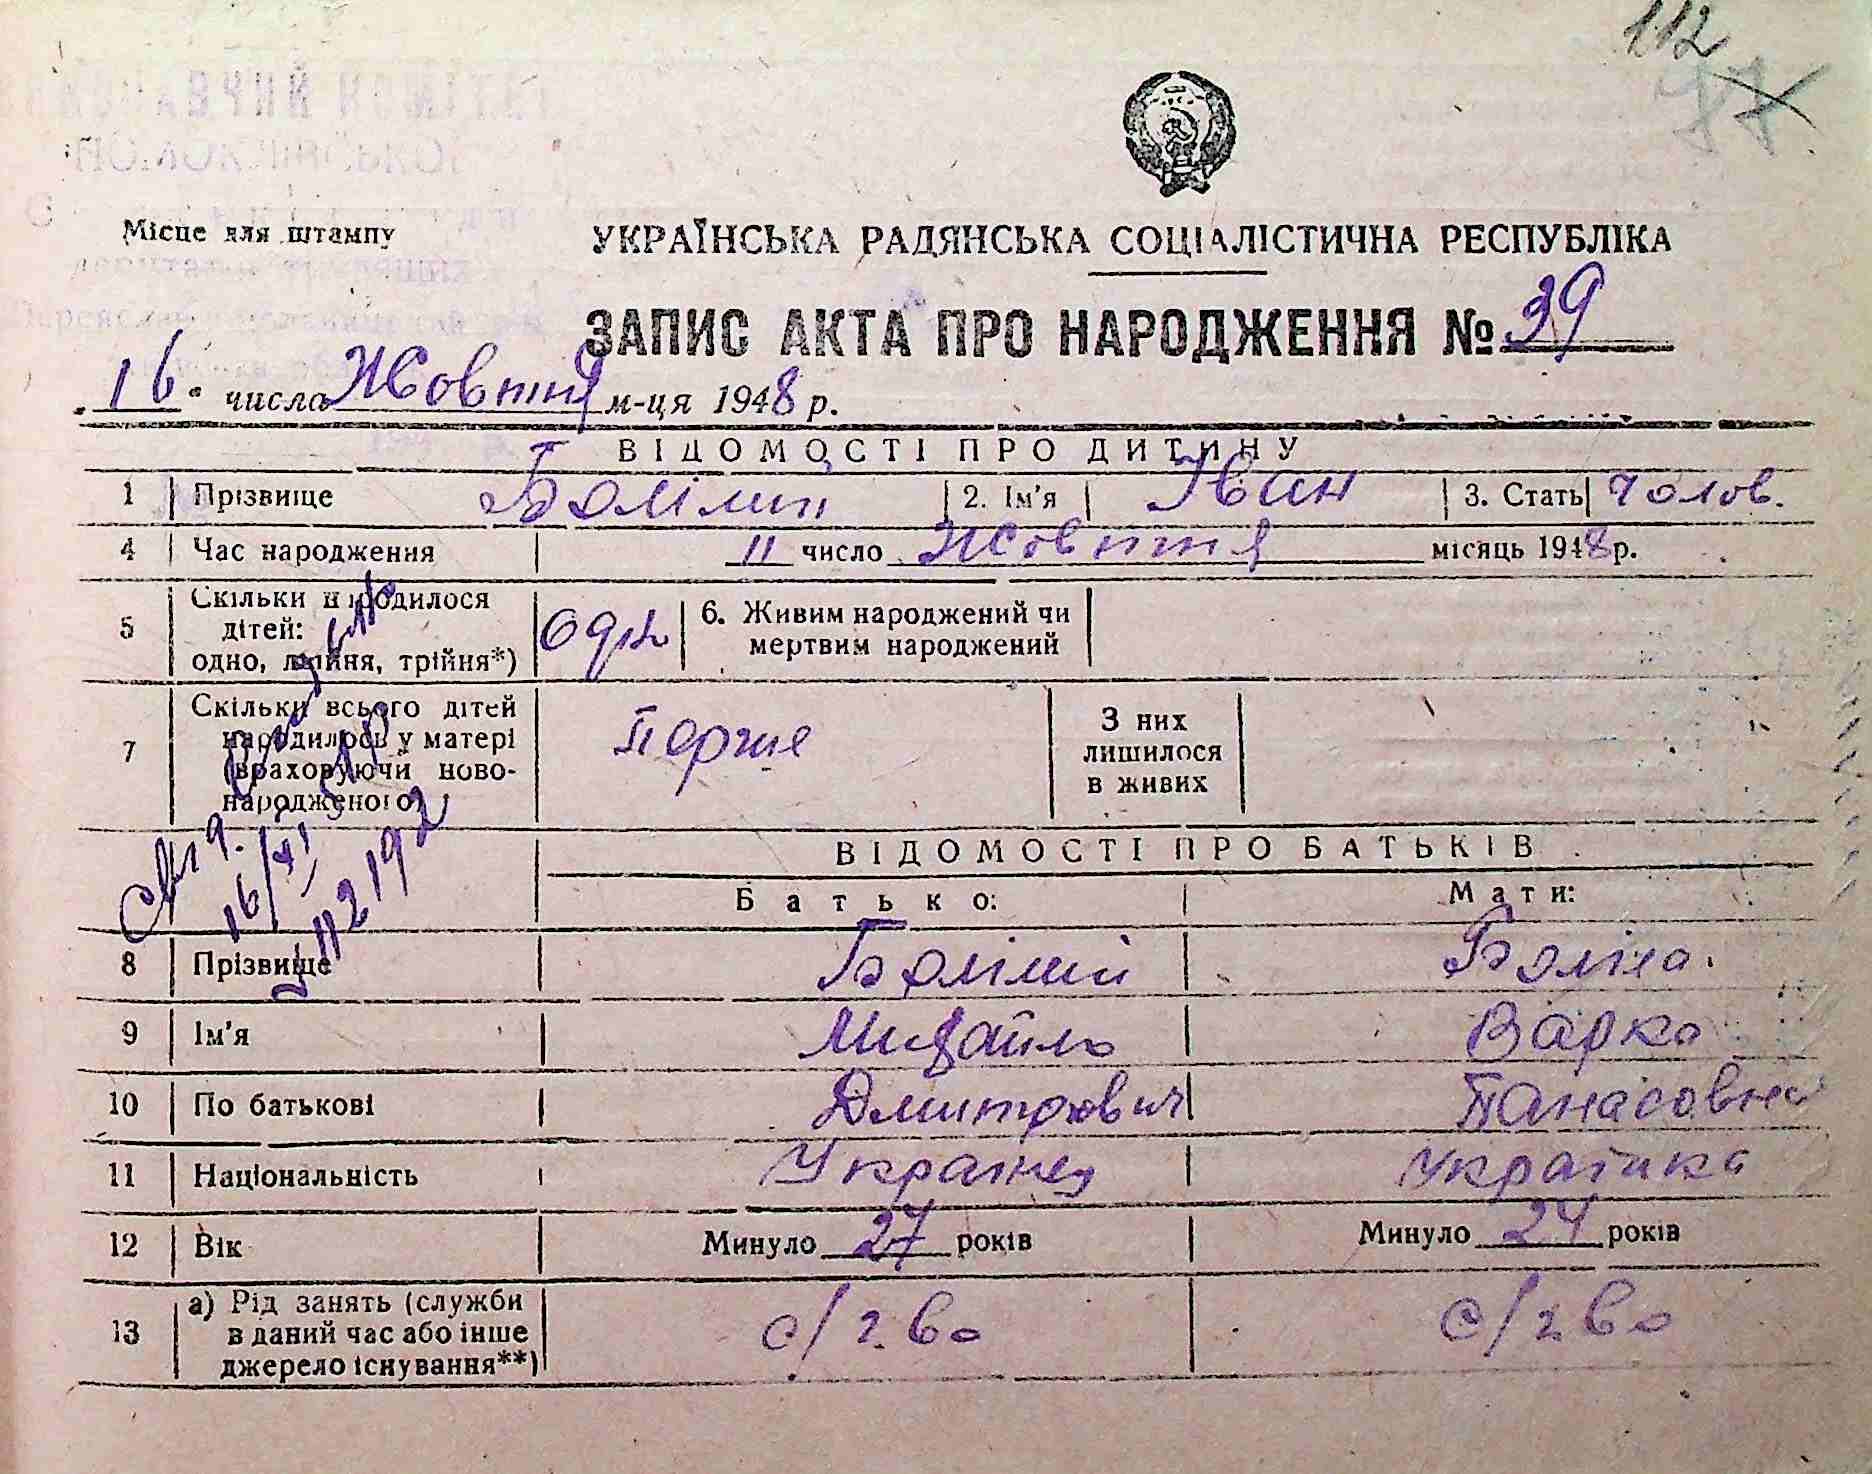 112
77
Місце для штампу
УКРАЇНСЬКА РАДЯНСЬКА СОЦІАЛІСТИЧНА РЕСПУБЛІКА
ЗАПИС АКТА ПРО НАРОДЖЕННЯ № 39
"16" числа Жовтня м-ця 1948 р.
ВІДОМОСТІ ПРО ДИТИНУ
1 Прізвище 2. Ім'я Іван 3. Стать Чолов.
4 Час народження 11 число Жовтня місяць 1948 р.
5 Скільки народилося дітей: одно, двійня, трійня*) 6. Живим народжений чи мертвим народжений
7 Скільки всього дітей народилось у матері (враховуючи новонародженого) Перше З них лишилося в живих
16/XI
112192
ВІДОМОСТІ ПРО БАТЬКІВ
Батько: Мати:
8 Прізвище
9 Ім'я Михайло Варка
10 По батькові Дмитрович Панасовна
11 Національність Українец Украінка
12 Вік Минуло 27 років Минуло 24 років
13 а) Рід занять (служби в даний час або інше джерело існування**) с/г. во с/г во